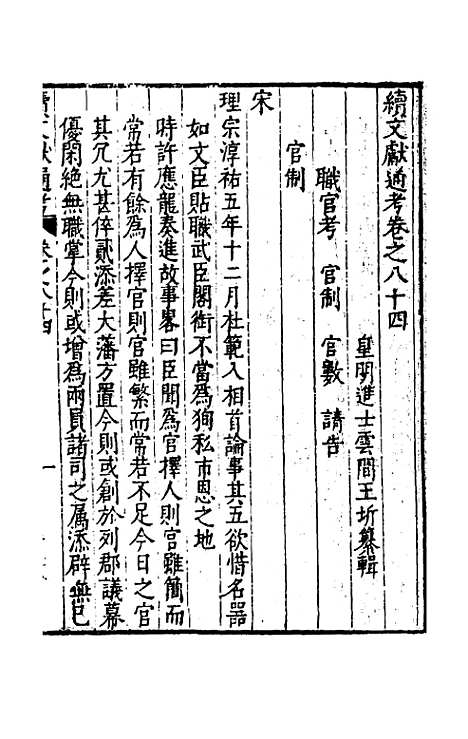 續文獻通考卷之八十四
皇明進士雲間王圻纂輯
職官考 官制 官數 請告
官制
宋
理宗淳祐五年十二月杜範入相首論事其五欲惜名器
如文臣貼職武臣閣衔不當爲狥私市恩之地
時許應龍奏進故事畧曰臣聞爲官擇人則官雖簡而
常若有餘爲人擇官則官雖繁而常若不足今日之官
其冗尤甚倅貳添差大藩方置今則或創於列郡議幕
優閑絶無職掌今則或增爲兩員諸司之属添辟無已
續文獻通考 卷之八十四 一